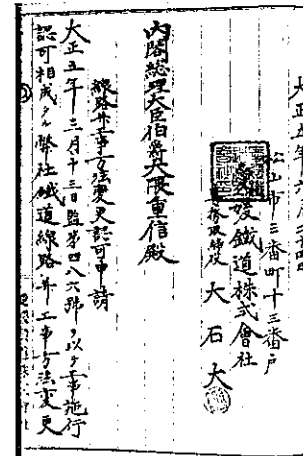 松山市三番町十三番戸
愛媛鐵道株式會社
専務取締役 大石大
内閣總理大臣伯爵大隈重信殿
線路并工事方法變更認可申請
大正五年三月十三日監第四八六號ヲ以テ工事施行
認可相成候弊社鐵道線路并工事方法變更